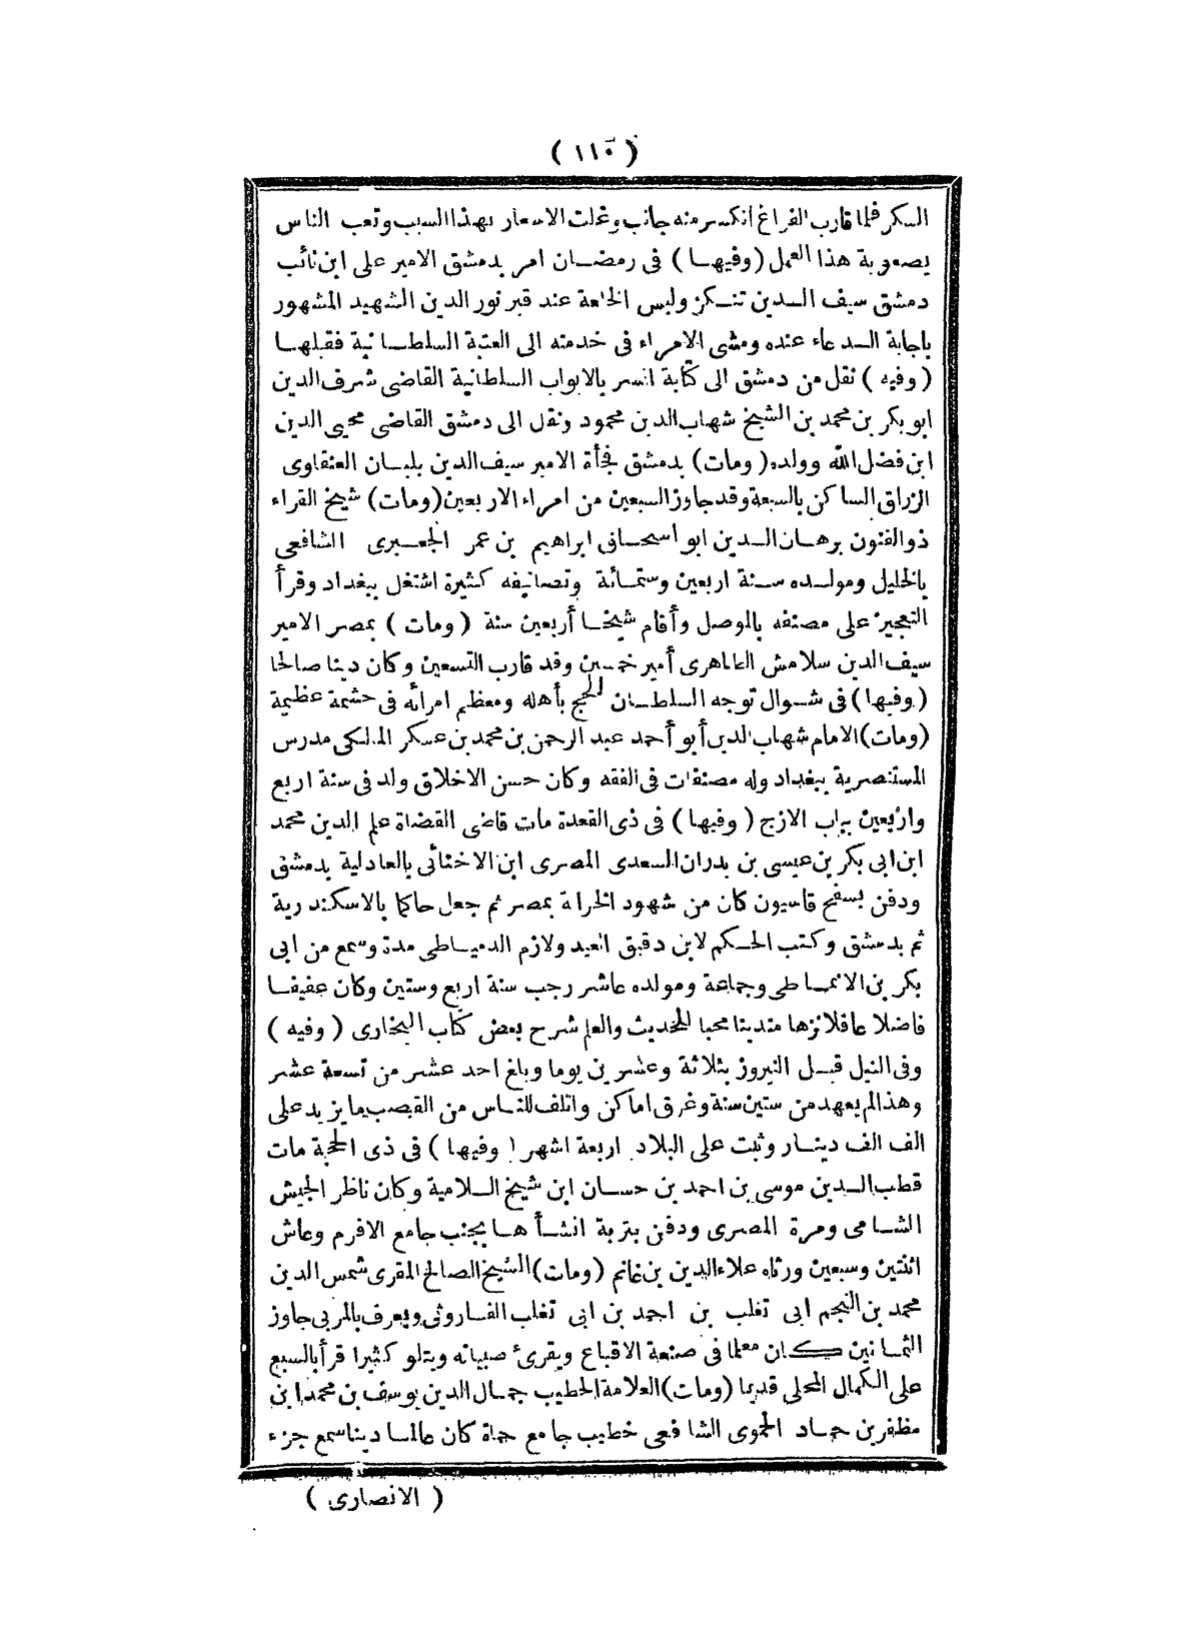 ( ١١٠ )
السكر فلما قارب الفراغ انكسر منه جانب وغلت الاسعار بهذا السبب وتعب الناس
بصعوبة هذا العمل (وفيها) فى رمضان امر بدمشق الامير على ابن نائب
دمشق سيف الدين تنكز ولبس الخلعة عند قبر نور الدين الشهيد المشهور
باجابة الدعاء عنده ومشى الامراء فى خدمته الى العتبة السلطانية فقبلها
(وفيه) نقل من دمشق الى كتابة السر بالابواب السلطانية القاضى شرف الدين
ابو بكر بن محمد بن الشيخ شهاب الدين محمود ونقل الى دمشق القاضى محيى الدين
ابن فضل الله وولده (ومات) بدمشق فجأة الامير سيف الدين بلبان العنقاوى
الزراق الساكن بالسبعة وقد جاوز السبعين من امراء الاربعين (ومات) شيخ القراء
ذوالفنون برهان الدين ابو اسحاق ابراهيم بن عمر الجعبرى الشافعى
بالخليل ومولده سنة اربعين وستمائة وتصانيفه كثيرة اشتغل ببغداد وقرأ
التعجيز على مصنفه بالموصل وأقام شيخا أربعين سنة (ومات) بمصر الامير
سيف الدين سلامش الظاهرى أمير خمسين وقد قارب التسعين وكان دينا صالحا
(وفيها) فى شوال توجه السلطان للحج بأهله ومعظم امرائه فى حشمة عظيمة
(ومات) الامام شهاب الدين أبو أحمد عبد الرحمن بن محمد بن عسكر المالكى مدرس
المستنصرية ببغداد وله مصنفات فى الفقه وكان حسن الاخلاق ولد فى سنة اربع
واربعين بباب الازج (وفيها) فى ذى القعدة مات قاضى القضاة علم الدين محمد
ابن ابى بكر بن عيسى بن بدران السعدى المصرى ابن الاخنائى بالعادلية بدمشق
ودفن بسفح قاسيون كان من شهود الخزانة بمصر ثم جعل حاكما بالاسكندرية
ثم بدمشق وكتب الحكم لابن دقيق العيد ولازم الدمياطى مدة وسمع من ابى
بكر بن الانماطى وجماعة ومولده عاشر رجب سنة اربع وستين وكان عفيفا
فاضلا عاقلا نزها متدينا محبا للحديث والعلم شرح بعض كتاب البخارى (وفيه)
وفى النيل قبل النيروز بثلاثة وعشرين يوما وبلغ احد عشر من تسعة عشر
وهذا لم يعهد من ستين سنة وغرق اماكن واتلف للناس من القصب ما يزيد على
الف الف دينار وثبت على البلاد اربعة اشهر (وفيها) فى ذى الحجة مات
قطب الدين موسى بن احمد بن حسان ابن شيخ السلامية وكان ناظر الجيش
الشامى ومرة المصرى ودفن بتربة انشأها بجنب جامع الافرم وعاش
اثنتين وسبعين ورثاه علاء الدين بن غانم (ومات) الشيخ الصالح المقرى شمس الدين
محمد بن النجم ابى تغلب بن احمد بن ابى تغلب الفاروثى ويعرف بالمربى جاوز
الثمانين كان معلما فى صنعة الاقباع ويقرئ صبيانه ويتلو كثيرا قرأ بالسبع
على الكمال المحلى قديما (ومات) العلامة الخطيب جمال الدين يوسف بن محمد ابن
مظفر بن حماد الحموى الشافعى خطيب جامع حماة كان عالما دينا سمع جزء
( الانصارى )